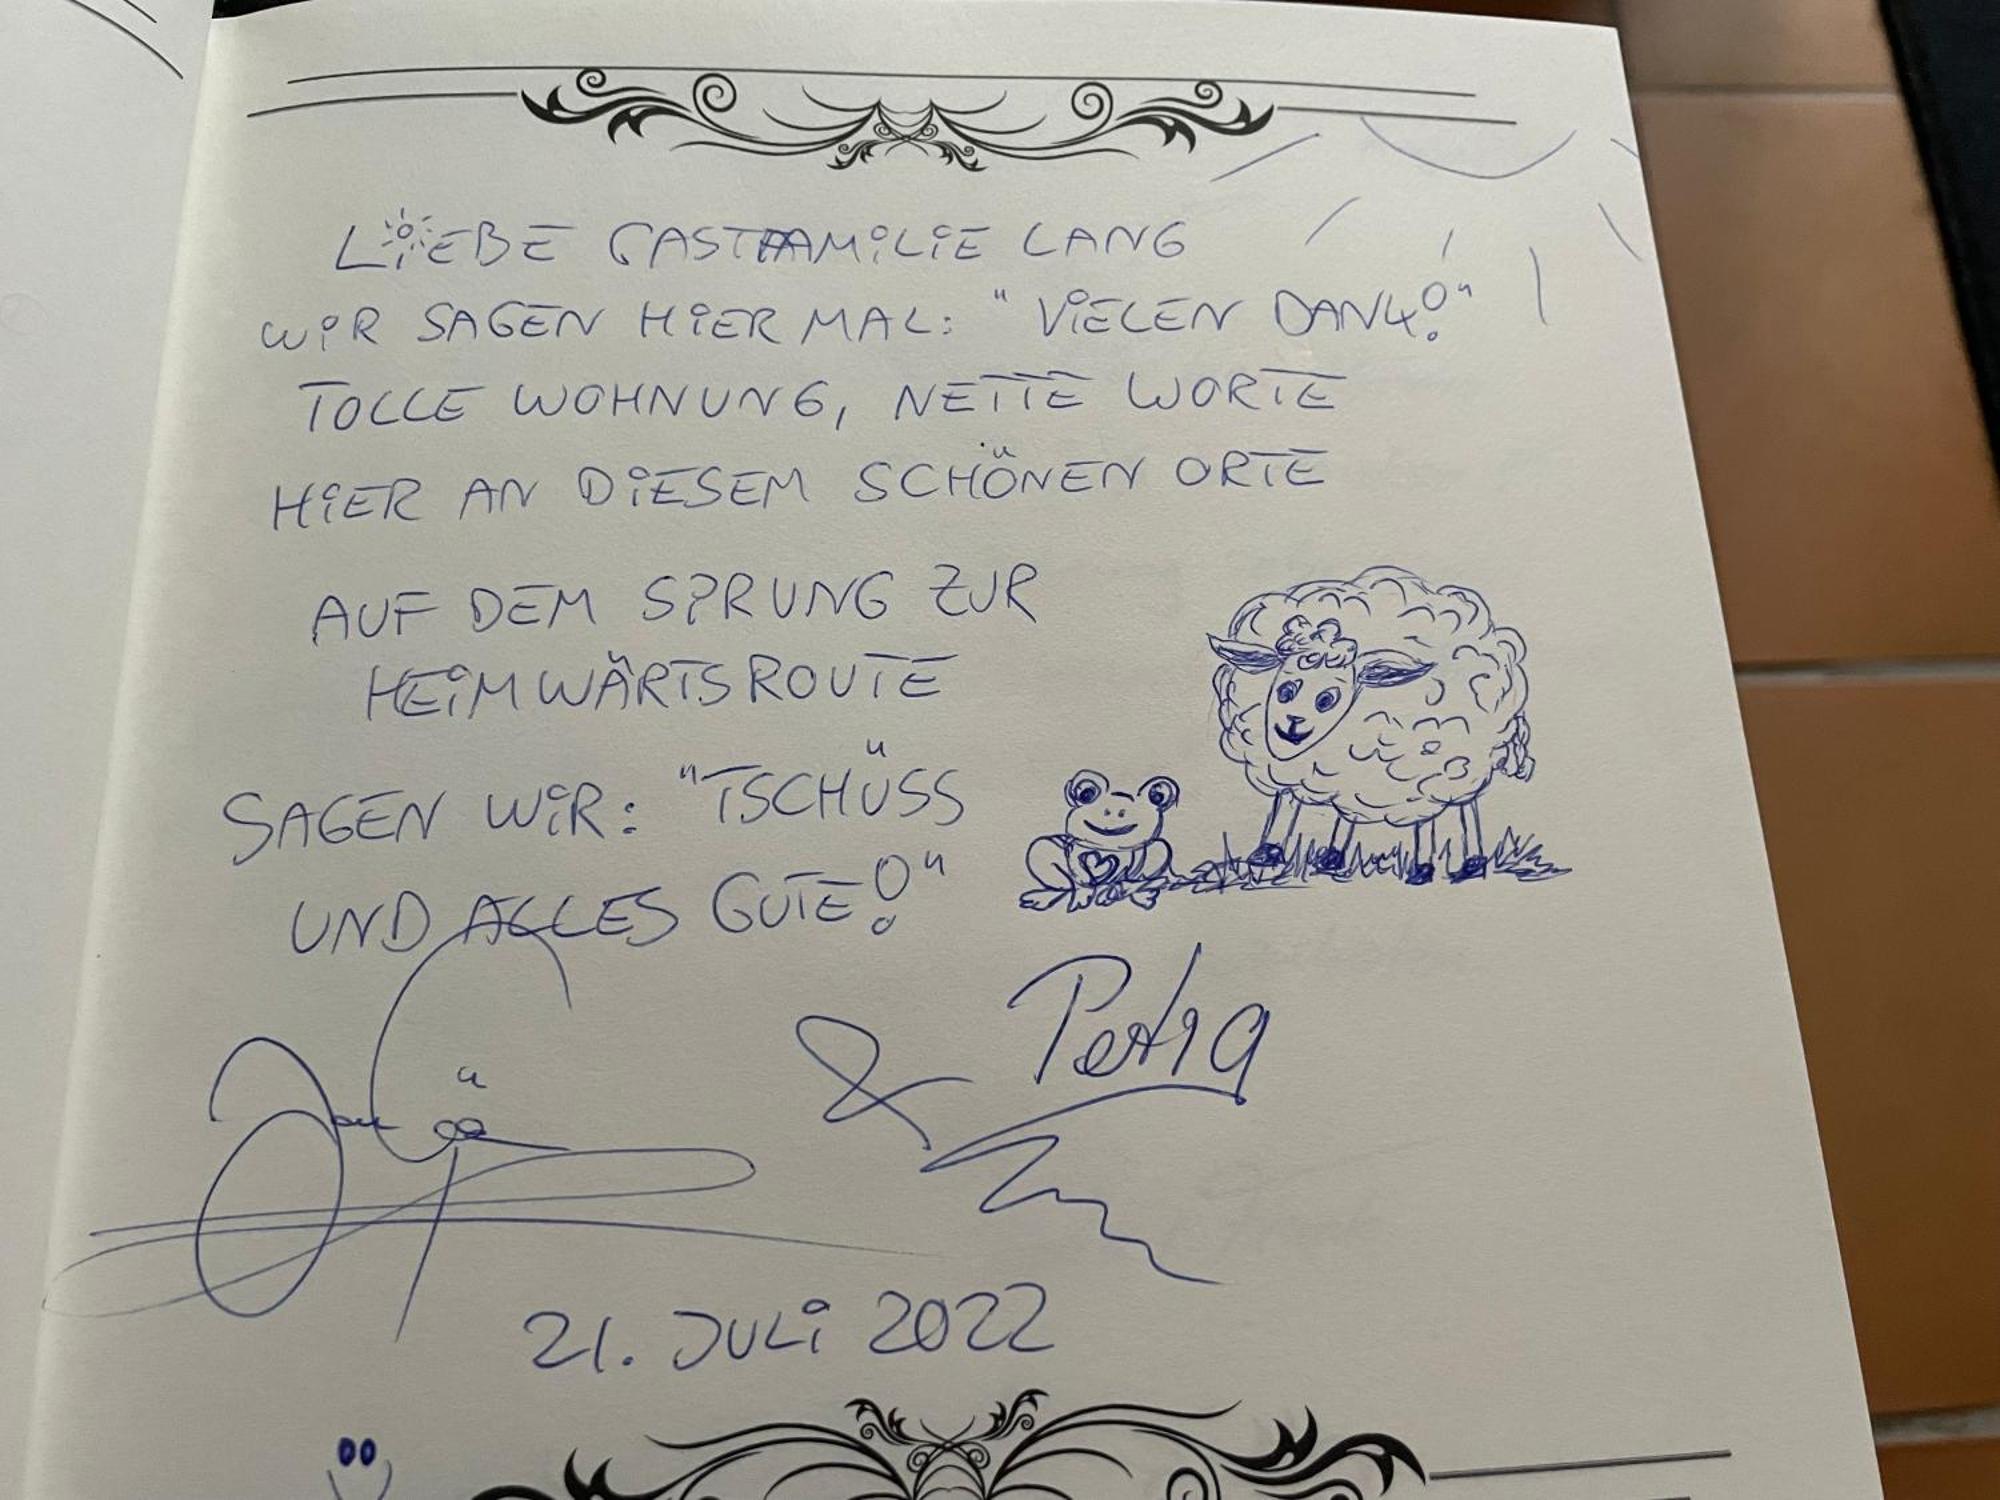 LIEBE GASTFAMILIE LANG
WIR SAGEN HIER MAL: "VIELEN DANK!"
TOLLE WOHNUNG, NETTE WORTE
HIER AN DIESEM SCHÖNEN ORTE
AUF DEM SPRUNG ZUR
HEIMWÄRTSROUTE
SAGEN WIR: "TSCHÜSS
UND ALLES GUTE!"
& Petra
21. JULI 2022